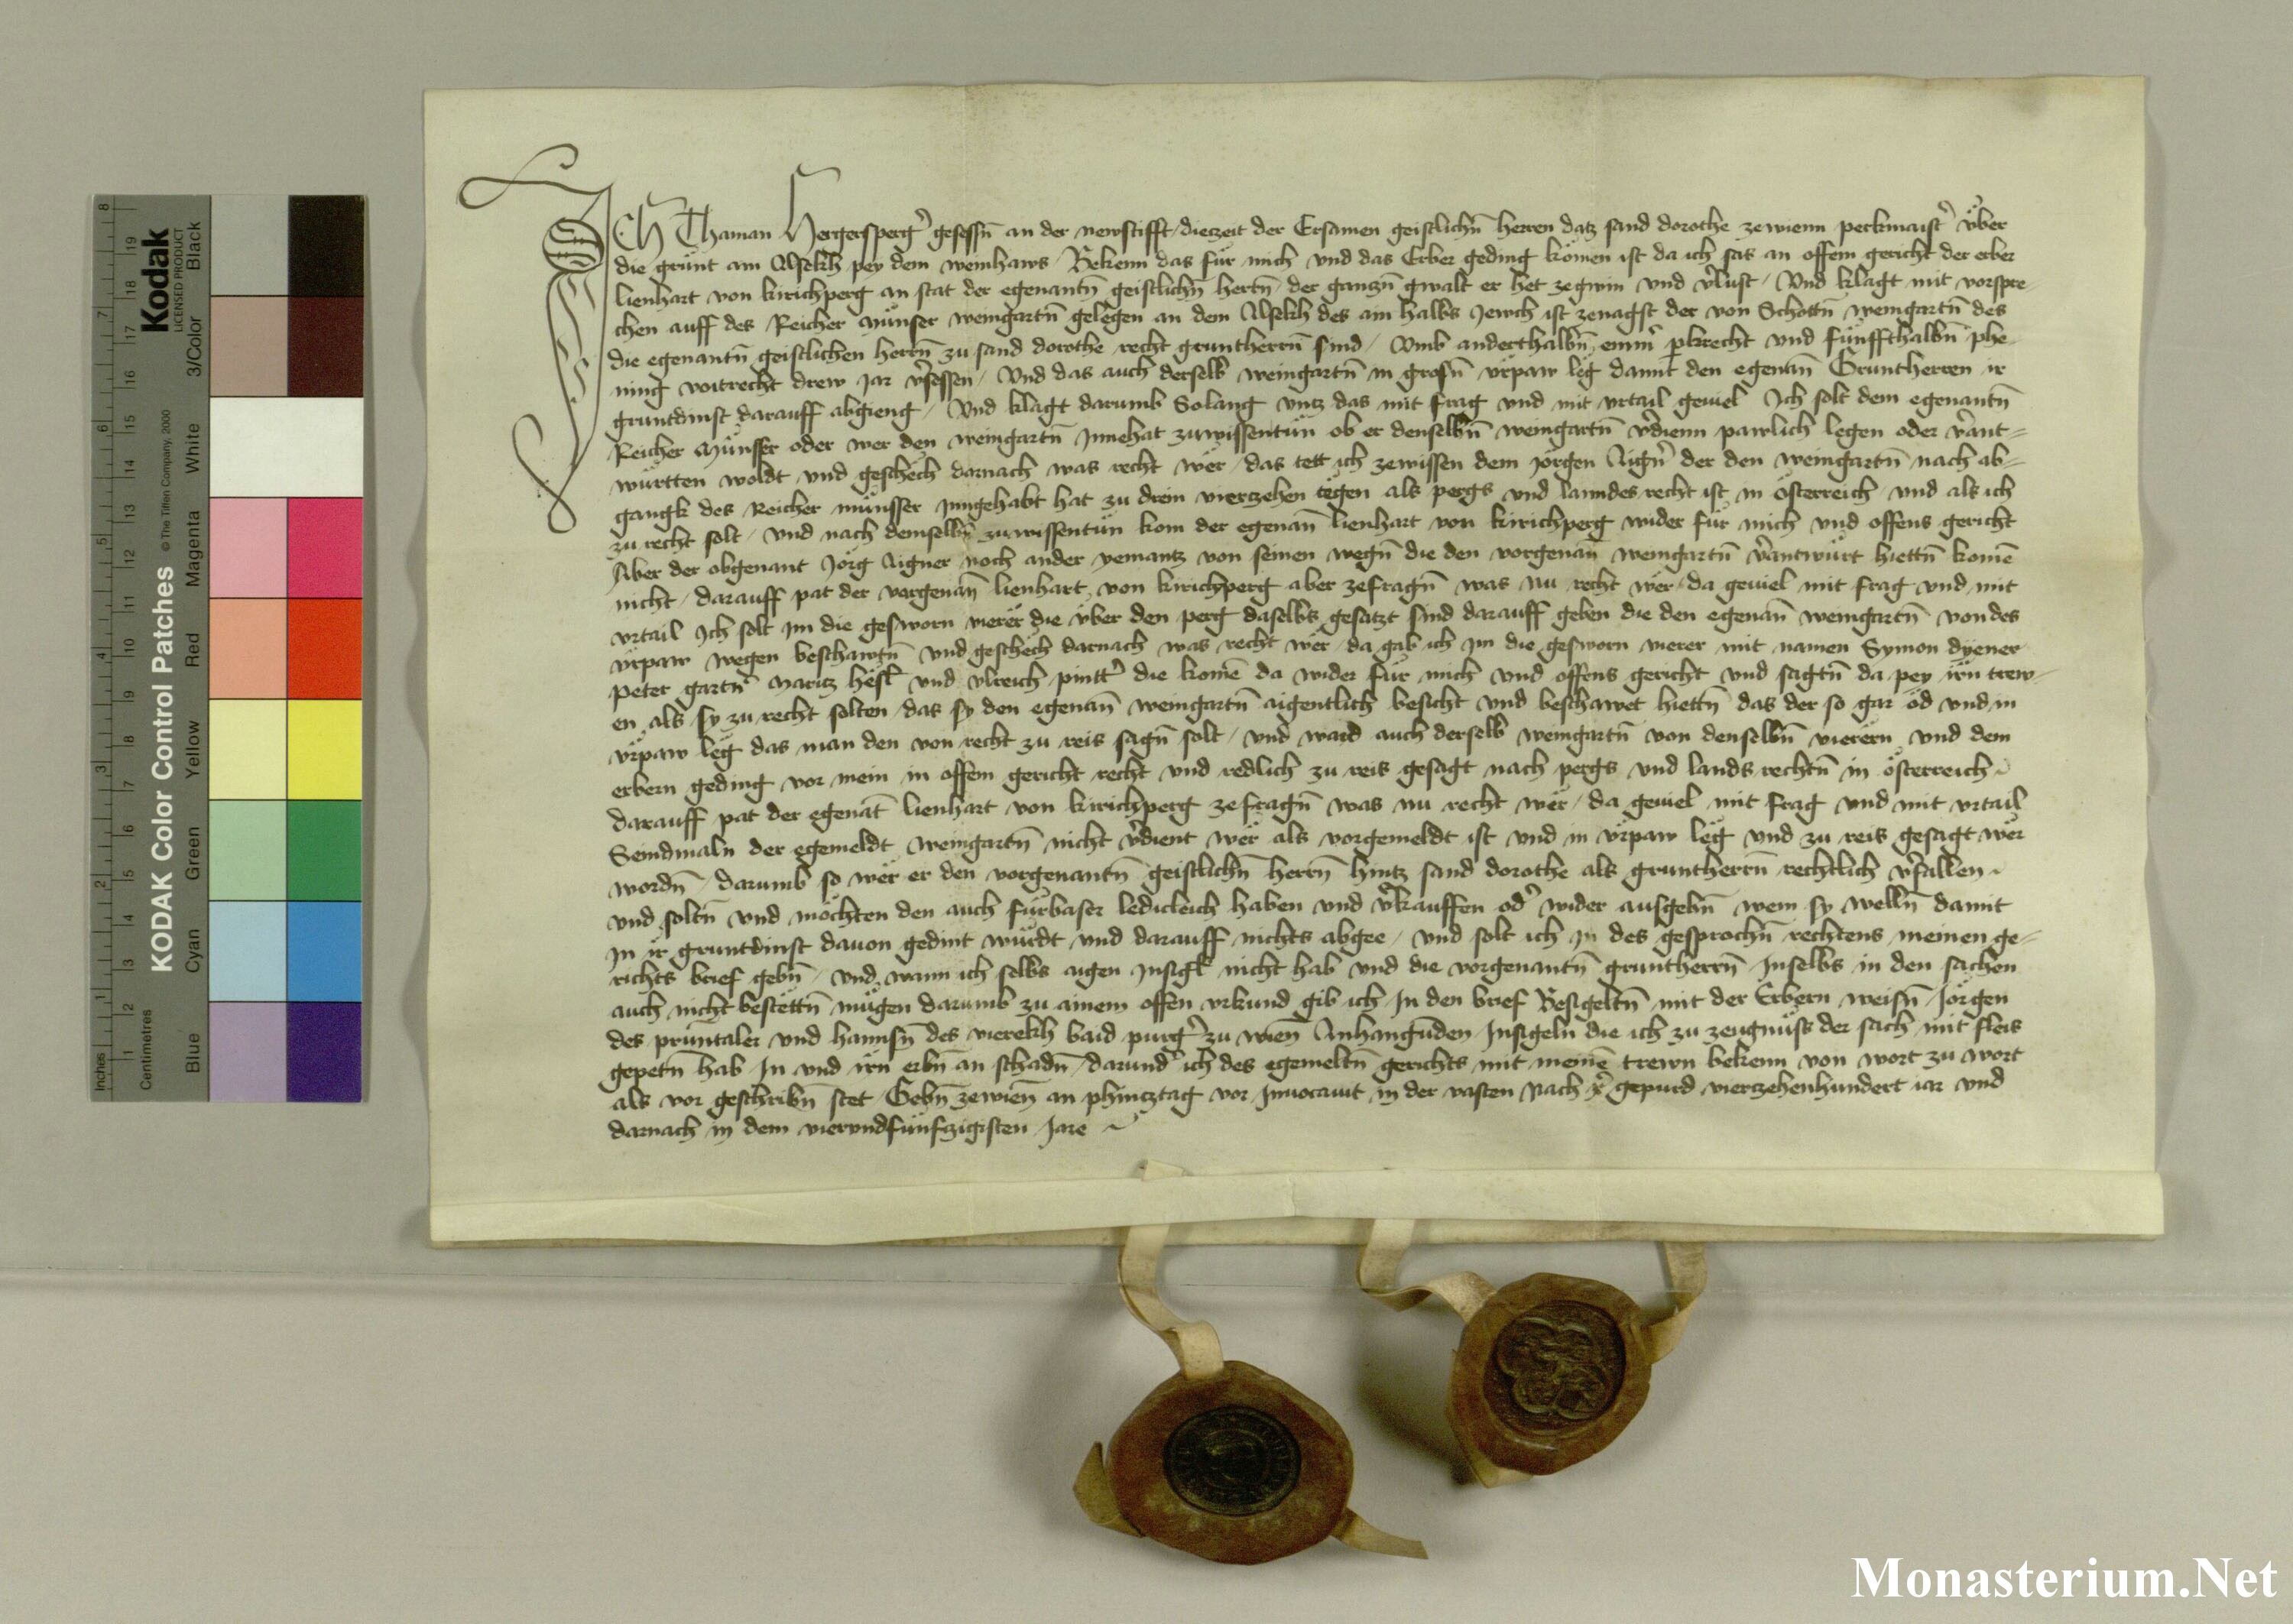 ICh Thaman Hergersperg᷑ gesessn̄ an der newstifft / diezeit der Ersamen geistlichn̄ herren datz sand dorothe zewienn perkmaist᷑ vͤber
die grünt am Alsekh pey dem weinhaws / Bekenn das fur mich vnd das Erber geding komen ist da ich sas an offem gericht der erber
lienhart von kirichperg an stat der egenantn̄ geistlichn̄ herrn̄ der ganczn̄ gwalt er het zegwin vnd v᷑lust / Vnd klagt mit vorspre-
chen auff des Reicher Münser weingartn̄ gelegen an dem Alsekh des ain halbs Jewch ist zenagst der von Schottn̄ weingartn̄ des
die egenantn̄ geistlichen herrn̄ zu sand dorothe recht gruntherrn̄ sind / Vmb anderthalbn̄ emm᷑ pkrecht vnd funffthalbn̄ phe-
ning voitrecht drew Jar v᷑sessen / Vnd das auch derselb weingartn̄ in grosn̄ vrpaw leg damit den egenan̄ Gruntherren ir
gruntdinst darauff abgieng / Vnd klagt darumb Solang vntz das mit frag vnd mit vrtail geuiel Ich solt dem egenantn̄
Reicher Münsser oder wer den weingartn̄ Innehat zuwissentün ob er denselbn̄ weingartn̄ v᷑dienn pawlich legen oder v᷑ant=
württen woldt vnd geschech darnach was recht wer / das tett ich zewissen dem Jorgen Aign᷑ der den weingartn̄ nach ab=
gangk des Reicher münsser Inngehabt hat zu drein vierczehen tegen als pergs vnd lanndes recht ist in österreich vnd als ich
zu recht solt / vnd nach demselbn̄ zuwissentün kom der egenan̄ lienhart von kirichperg wider fur mich vnd offens gericht
Aber der obgenant Jorg Aigner noch ander yemantz von seinen wegn̄ die den vorgenan̄ weingartn̄ v᷑antwürt hiettn̄ komē
nicht / darauff pat der vorgenan̄ lienhart von kirichperg aber zefragn̄ was nu recht wer / da geuiel mit frag vnd mit
vrtail Ich solt Im die gesworn vierer die vber den perg daselbs gesatzt sind darauff geben die den egenan̄ weingartn̄ von des
vrpaw wegen beschawtn̄ vnd geschech darnach was recht wer / da gab ich Im die gesworn vierer mit namen Symon dyener
Peter gartn᷑ Maritz hesl vnd vlreich pintt᷑ die komē da wider fur mich vnd offens gericht vnd sagtn̄ da pey irn trew-
en als sy zu recht solten / das sy den egenan̄ weingartn̄ aigentlich besicht vnd beschawet hiettn̄ das der so gar öd vnd in
vrpaw leg das man den von recht zu reis sagn̄ solt / vnd ward auch derselb weingartn̄ von denselbn̄ vierern vnd dem
erbern geding vor mein in offem gericht recht vnd redlich zu reis gesagt nach pergs vnd lands rechtn̄ in österreich
darauff pat der egenāt lienhart von kirichperg zefragn̄ was nu recht wer / da geuiel mit frag vnd mit vrtail
Seindmaln der egemeldt weingartn̄ nicht v᷑dient wer als vorgemeldt ist vnd in vrpaw leg vnd zu reis gesagt wer
wordn̄ / darumb so wer er den vorgenantn̄ geistlichn̄ herrn̄ hintz sand dorothe als gruntherrn̄ rechtlich v᷑fallen
vnd soltn̄ vnd möchten den auch fürbaser ledicleich haben vnd v᷑kauffen od᷑ wider ausgebn̄ wem sy welln̄ damit
In ir gruntdinst dauon gedint würdt vnd darauff nichts abgee / vnd solt ich In des gesprochn̄ rechtens meinen ge=
richts brief gebn̄ / vnd wann ich selbs aigen Insigl nicht hab vnd die vorgenantn̄ gruntherrn̄ Inselbs in den sachen
auch nicht bestettn̄ mügen darumb zu ainem offen vrkund gib ich In den brief Besigeltn̄ mit der Erbern weisn̄ Jörgen
des pruntaler vnd hannsn̄ des vierekh baid purg᷑ zu wien Anhangunden Insigeln die ich zu zeugnüss der sach mit fleis
gepetn̄ hab In vnd irn erbn̄ an schadn̄ / darund᷑ ich des egemeltn̄ gerichts mit meinē trewn bekenn von wort zu wort
als vor geschribn̄ stet / Gebn̄ zewienn an phincztag vor Inuocauit in der vasten Nach x᷑ gepurd vierzehenhundert iar vnd
darnach in dem vierundfunfzigisten Jare
KODAK Color Control Patches
© The Tiffen Company, 2000
Kodak
LICENSED PRODUCT
Inches
Centimetres
Blue
Cyan
Green
Yellow
Red
Magenta
White
3/Color
Black
Monasterium.Net